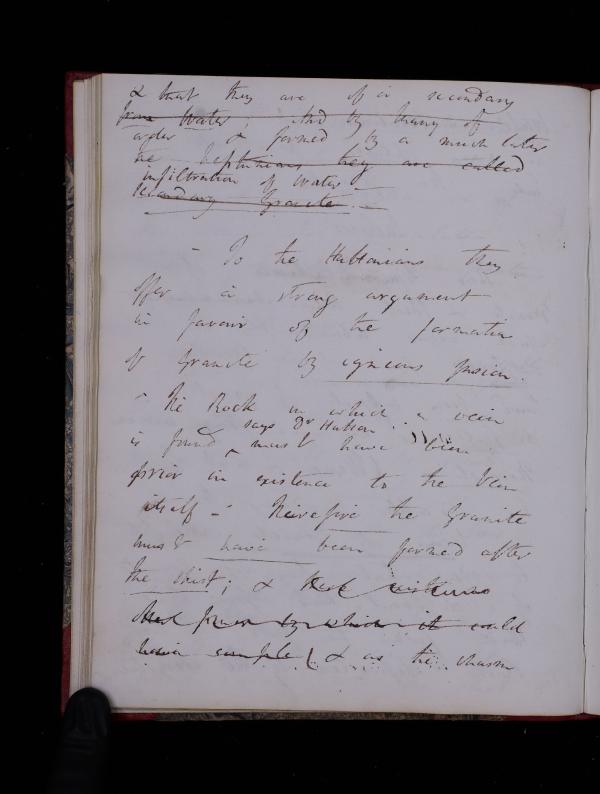 & that they are of a secondary
from Water; And by many of
order & formed by a much later
the Neptunians they are called
infiltration of Water –
secondary Granite. –
– To the Huttonians they
offer a strong argument
in favour of the formation
of Granite by igneous fusion.
– The Rock in which a vein
says Dr Hutton
is found must have been
prior in existence to the Vein
itself – Therefore the Granite
must have been formed after
the shist; &
by which it could
have & as the chasm